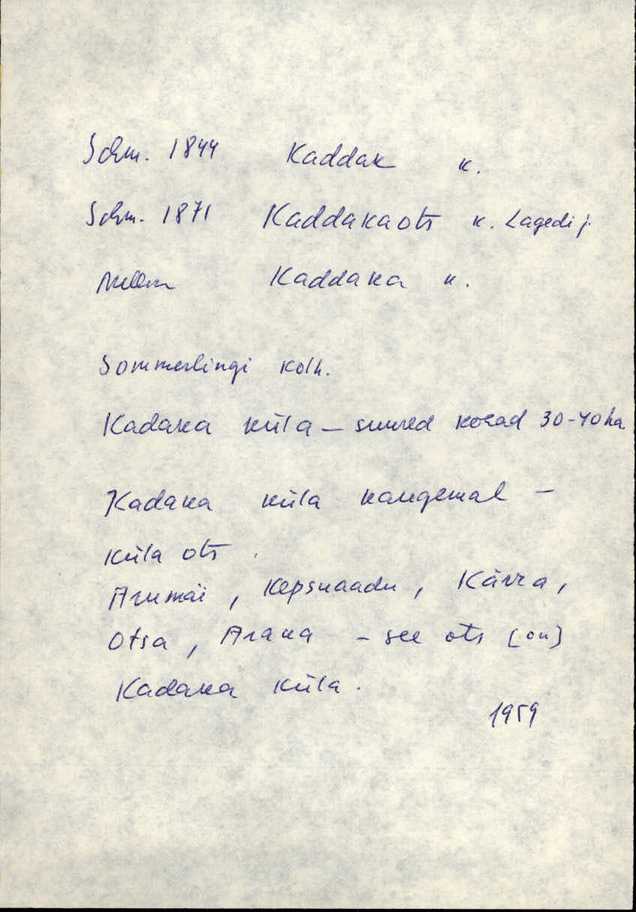 Schm. 1844 Kaddak k.
Schm. 1871 Kaddakaots k. Lagedi j.
Mellin Kaddaka k.
Sommerlingi kolh.
Kadaka küla – suured kohad 30-40 ha
Kadaka küla kaugemal –
küla ots.
Arumäi, Kepsuaadu, Kärra,
Otsa, Araka – see ots [on]
Kadaka küla.
1959